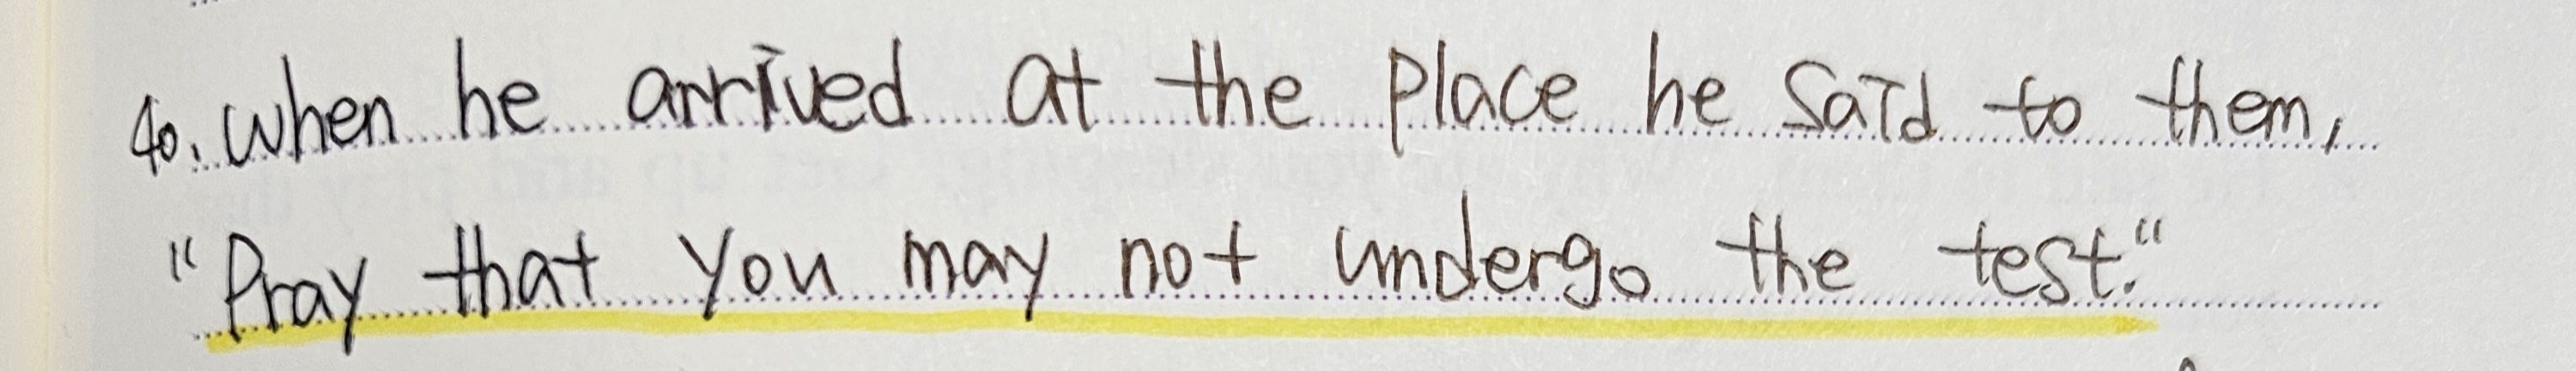 40. When he arrived at the place he said to them,
"Pray that you may not undergo the test."